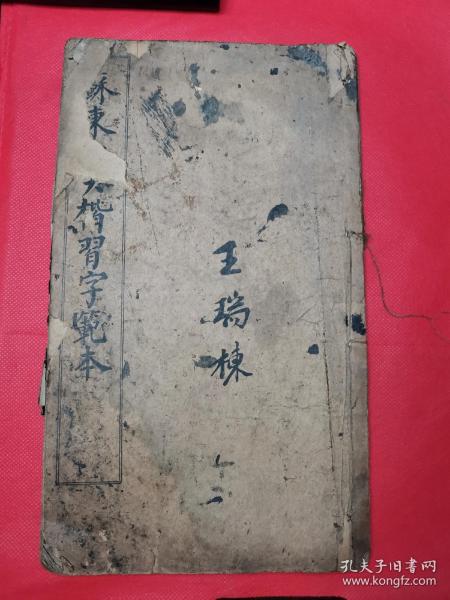 蘇東
大楷習字範本
王瑞棟
孔夫子旧书网
www.kongfz.com